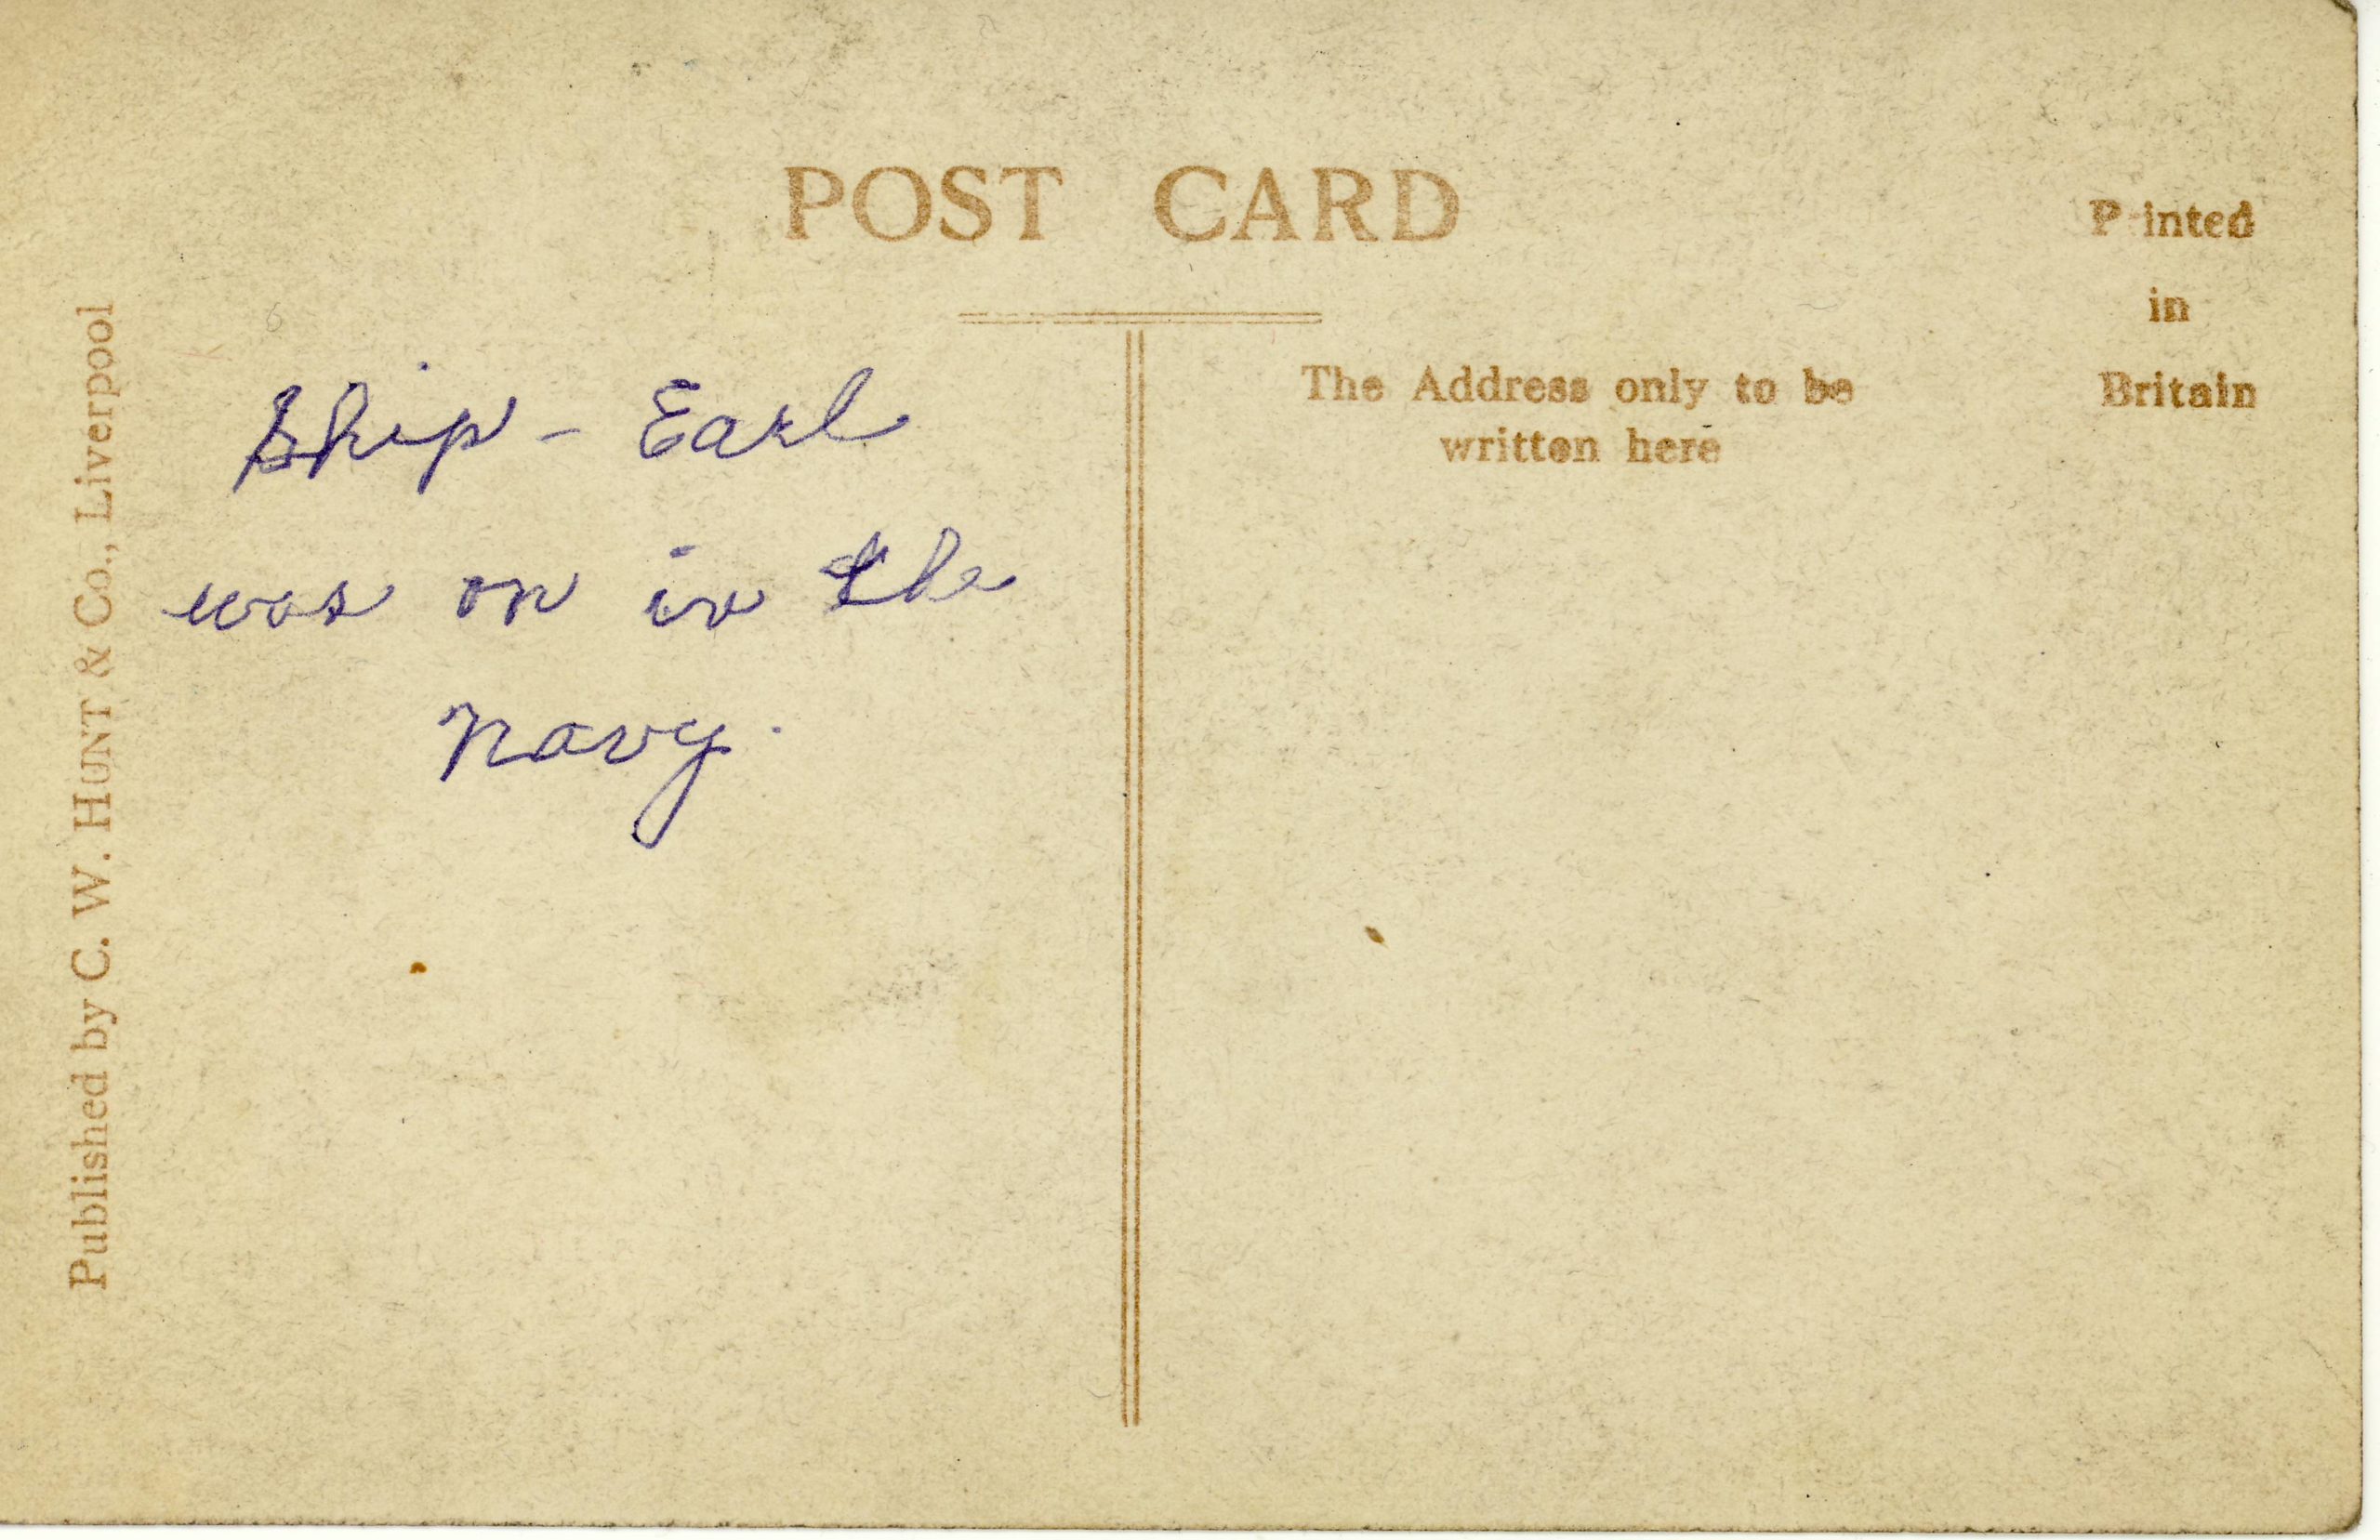 POST CARD
Published by C. W. HUNT & Co., Liverpool
Ship - Earl
was on in the
navy.
The Address only to be
written here
P inted
in
Britain